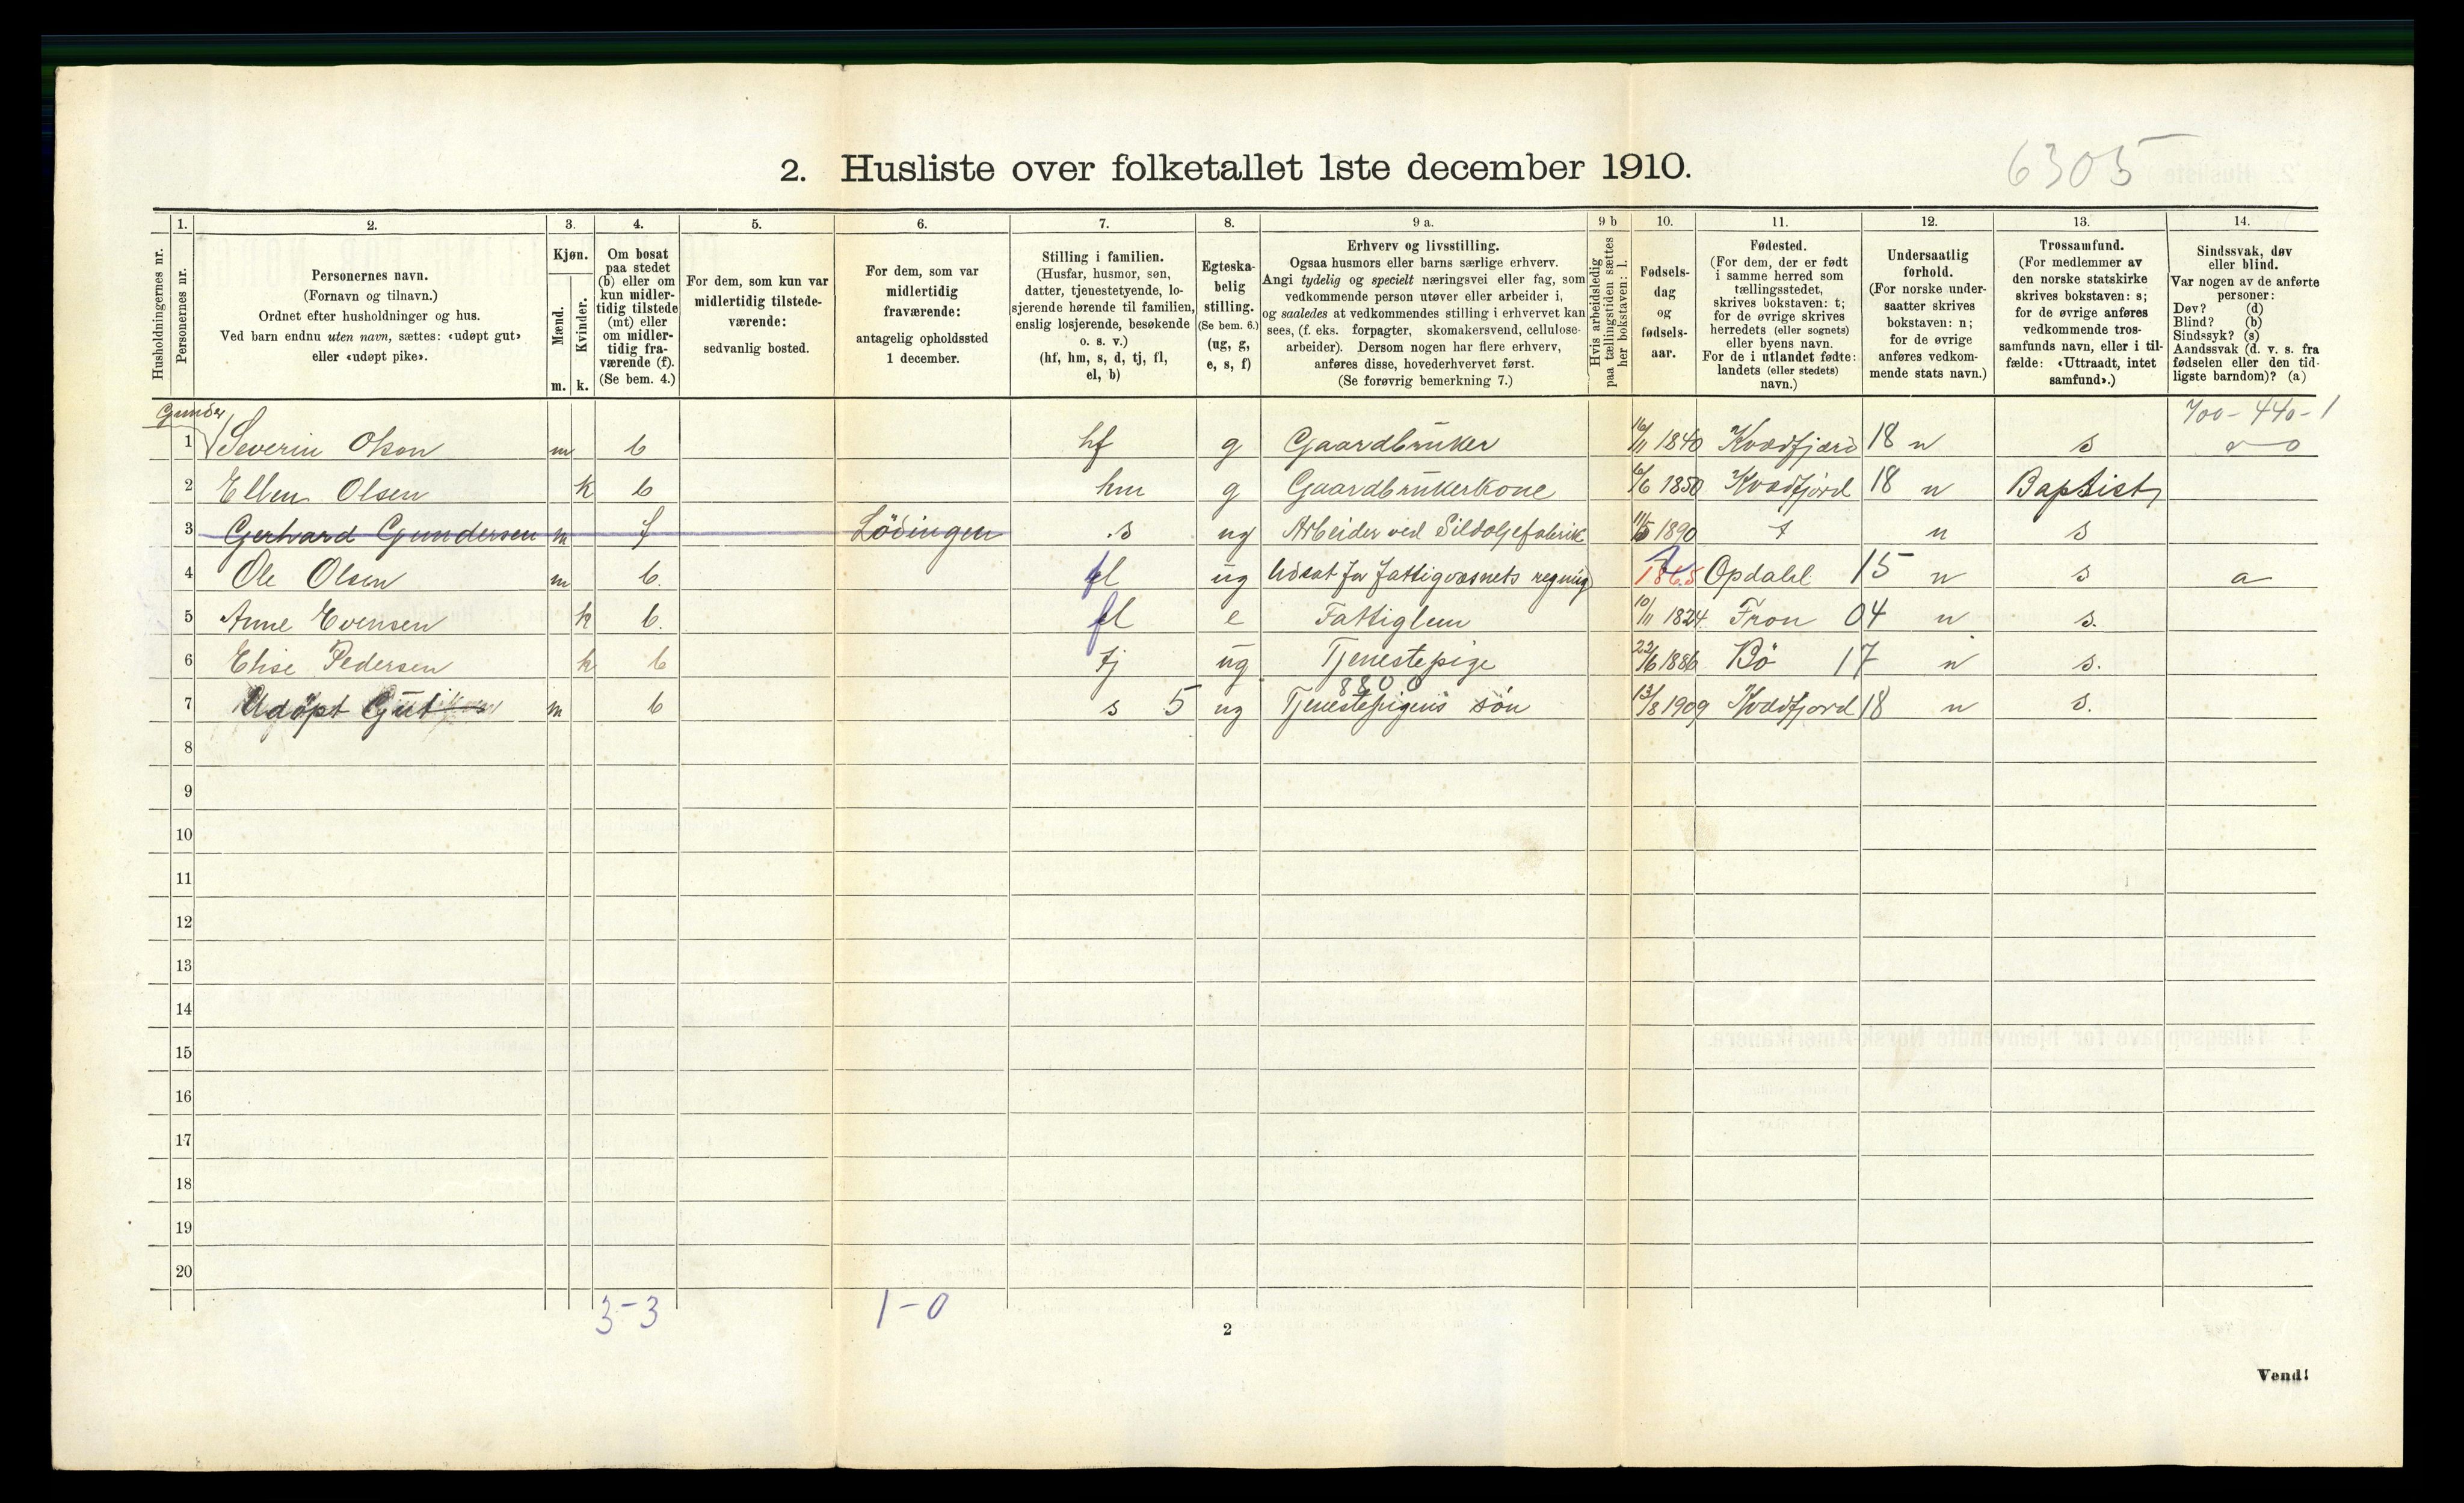 6305
2. Husliste over folketallet 1ste december 1910.
Husholdningernes nr.
1. Personernes nr.
2. Personernes navn. (Fornavn og tilnavn.) Ordnet efter husholdninger og hus. Ved barn endnu uten navn, sættes: «udøpt gut» eller «udøpt pike».
3. Kjøn. Mænd. m. Kvinder. k.
4. Om bosat paa stedet (b) eller om kun midlertidig tilstede (mt) eller om midlertidig fraværende (f). (Se bem. 4.)
5. For dem, som kun var midlertidig tilstedeværende: sedvanlig bosted.
6. For dem, som var midlertidig fraværende: antagelig opholdssted 1 december.
7. Stilling i familien. (Husfar, husmor, søn, datter, tjenestetyende, losjerende hørende til familien, enslig losjerende, besøkende o. s. v.) (hf, hm, s, d, tj, fl, el, b)
8. Egteskabelig stilling. (Se bem. 6.) (ug, g, e, s, f)
9 a. Erhverv og livsstilling. Ogsaa husmors eller barns særlige erhverv. Angi tydelig og specielt næringsvei eller fag, som vedkommende person utøver eller arbeider i, og saaledes at vedkommendes stilling i erhvervet kan sees, (f. eks. forpagter, skomakersvend, cellulosearbeider). Dersom nogen har flere erhverv, anføres disse, hovederhvervet først. (Se forøvrig bemerkning 7.)
9 b Hvis arbeidsledig paa tællingstiden sættes her bokstaven: l.
10. Fødselsdag og fødselsaar.
11. Fødested. (For dem, der er født i samme herred som tællingsstedet, skrives bokstaven: t; for de øvrige skrives herredets (eller sognets) eller byens navn. For de i utlandet fødte: landets (eller stedets) navn.)
12. Undersaatlig forhold. (For norske undersaatter skrives bokstaven: n; for de øvrige anføres vedkommende stats navn.)
13. Trossamfund. (For medlemmer av den norske statskirke skrives bokstaven: s; for de øvrige anføres vedkommende trossamfunds navn, eller i tilfælde: «Uttraadt, intet samfund».)
14. Sindssvak, døv eller blind. Var nogen av de anførte personer: Døv? (d) Blind? (b) Sindssyk? (s) Aandssvak (d. v. s. fra fødselen eller den tidligste barndom)? (a)
Gunder 700-440-1
1 Severin Olson m b hf g Gaardbruker 16/11 1840 Kvædfjord 18 n s
2 Ellen Olsen k b hm g Gaardbrukerkone 6/6 1850 Kvædfjord 18 n Baptist
3 Gerhard Gundersen m f Lödingen s ug Arbeider ved Sildoljefabrik 11/5 1890 t n s
4 Ole Olsen m b. fl ug Udsat for fattigvæsnets regning 1865 Opdahl 15 n s a
5 Anne Evensen k b. fl e Fattiglem 10/11 1824 Fron 04 n s.
6 Elise Pedersen k b tj ug Tjenestepige 22/6 1886 Bö 17 n s.
8800
7 Udøpt Gut m b s 5 ug Tjenestepigens søn 13/8 1909 Kvædfjord 18 n s.
8
9
10
11
12
13
14
15
16
17
18
19
20
3-3 1-0
2
Vend!